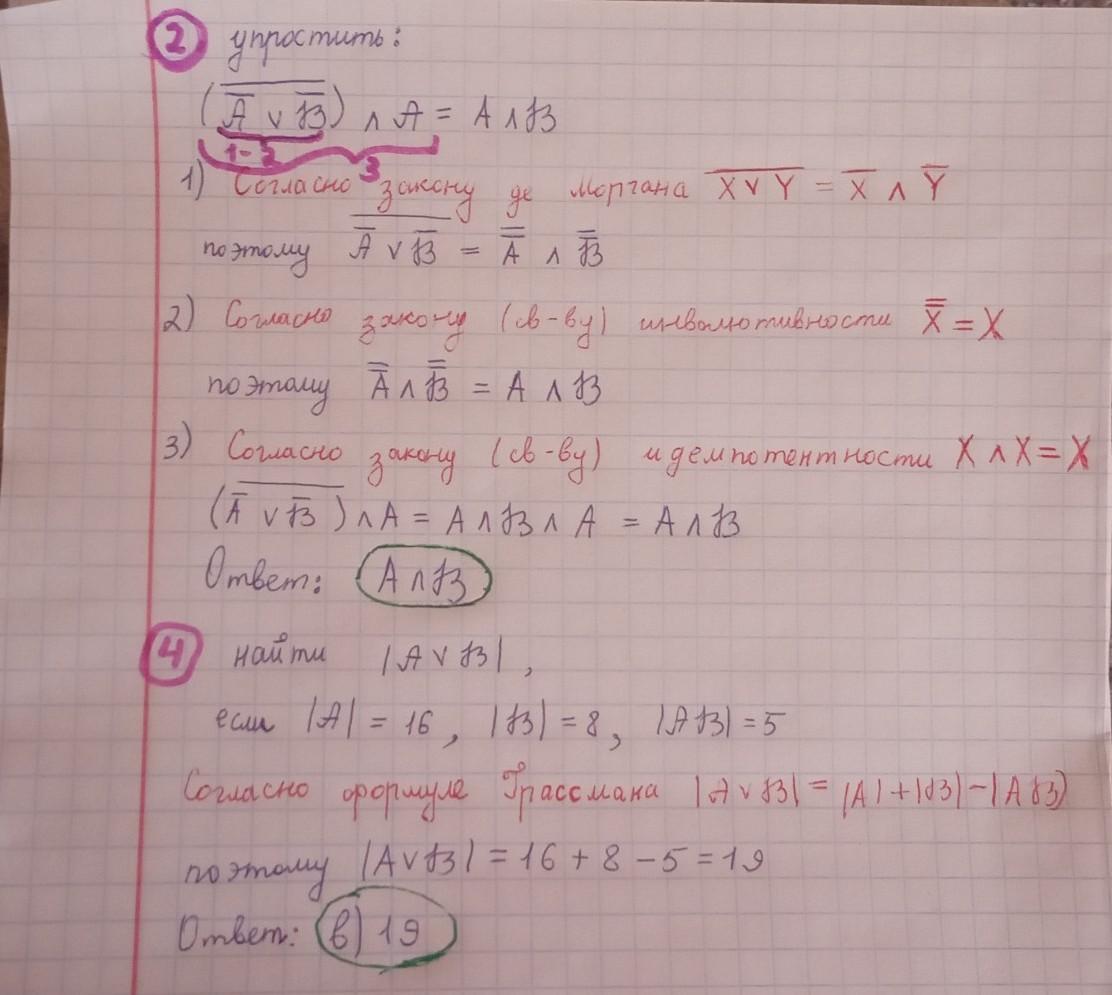 2 упростить:
(\overline{\overline{A} ∨ \overline{B}}) ∧ A = A ∧ B
1-2
3
1) Согласно закону де Моргана \overline{X ∨ Y} = \overline{X} ∧ \overline{Y}
поэтому \overline{\overline{A} ∨ \overline{B}} = \overline{\overline{A}} ∧ \overline{\overline{B}}
2) Согласно закону (св-ву) инволютивности \overline{\overline{X}} = X
поэтому \overline{\overline{A}} ∧ \overline{\overline{B}} = A ∧ B
3) Согласно закону (св-ву) идемпотентности X ∧ X = X
(\overline{\overline{A} ∨ \overline{B}}) ∧ A = A ∧ B ∧ A = A ∧ B
Ответ: A ∧ B
4 найти |A ∨ B|,
если |A| = 16, |B| = 8, |AB| = 5
Согласно формуле Грассмана |A ∨ B| = |A| + |B| - |AB|
поэтому |A ∨ B| = 16 + 8 - 5 = 19
Ответ: в) 19